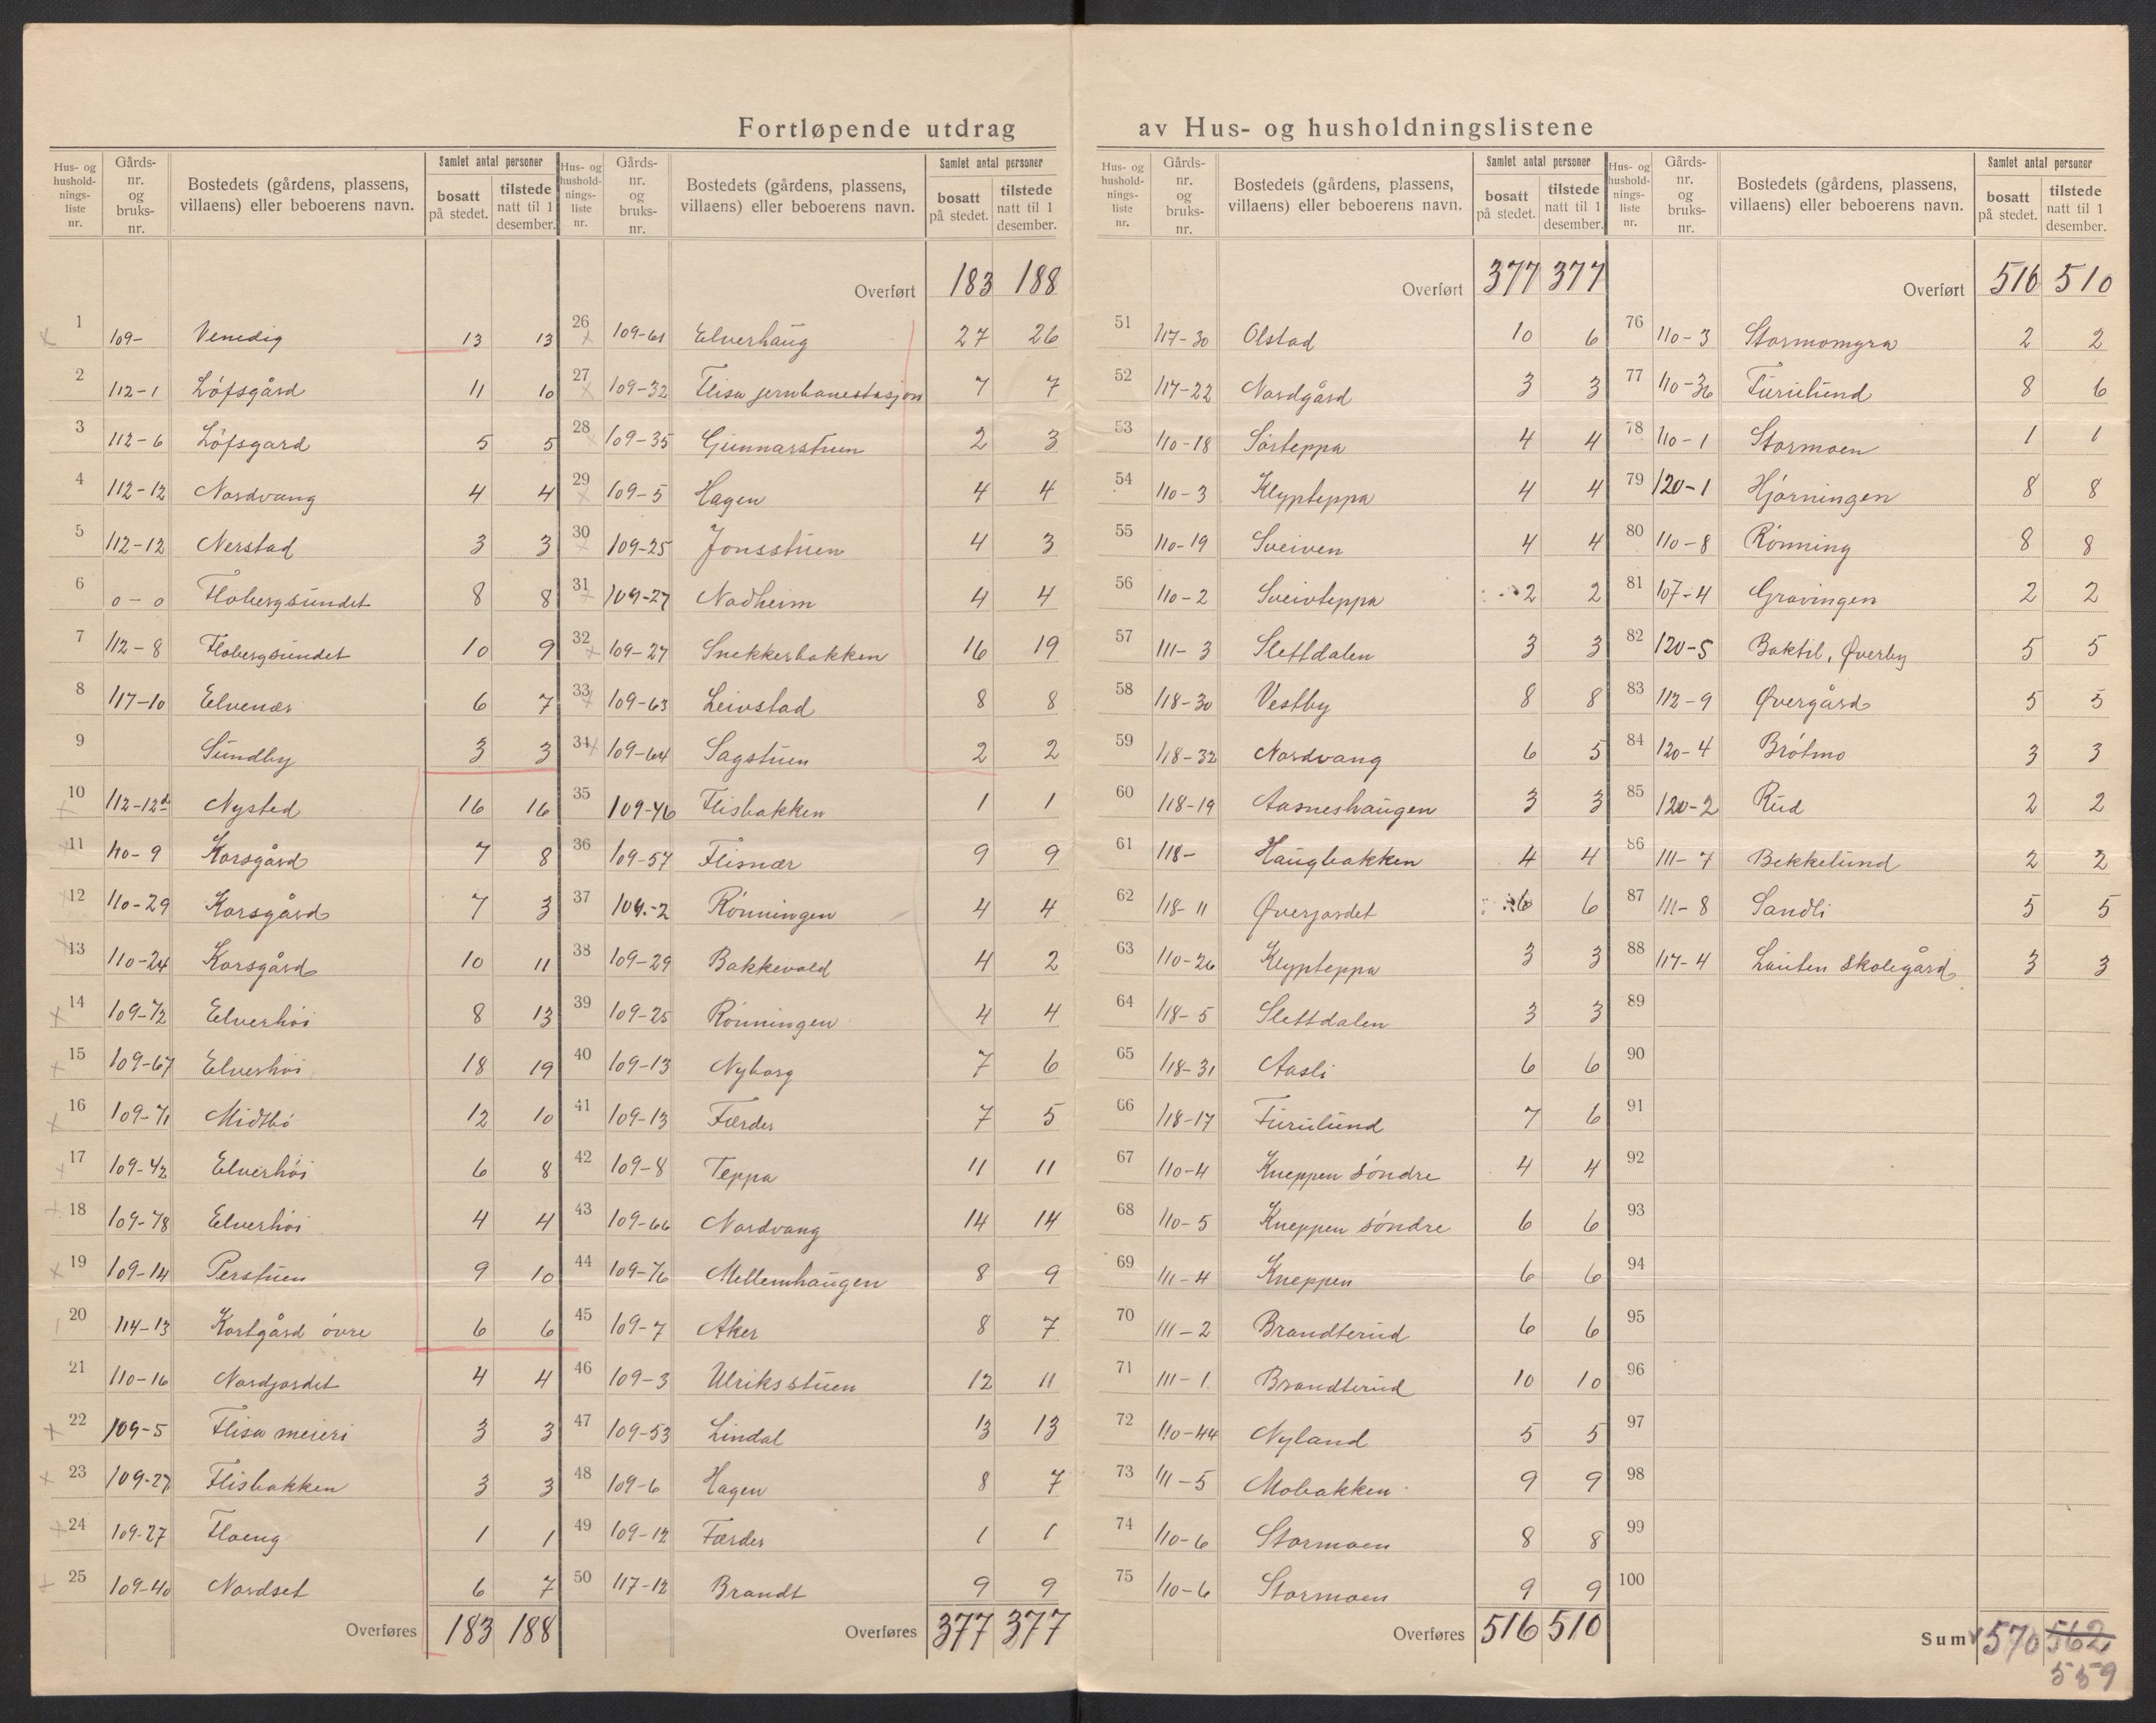 Fortløpende utdrag av Hus- og husholdningslistene
Hus- og hushold- nings- liste nr. | Gårds- nr. og bruks- nr. | Bostedets (gårdens, plassens, villaens) eller beboerens navn. | Samlet antal personer | bosatt på stedet. | tilstede natt til 1 desember.
1 109- Venedig 13 13
2 112-1 Løfsgård 11 10
3 112-6 Løfsgard 5 5
4 112-12 Nordvang 4 4
5 112-12 Nerstad 3 3
6 0-0 Flobergsundet 8 8
7 112-8 Flobergsundet 10 9
8 117-10 Elvenær 6 7
9 Sundby 3 3
10 112-12 Nysted 16 16
11 110-9 Korsgård 7 8
12 110-29 Korsgård 7 3
13 110-24 Korsgård 10 11
14 109-72 Elverhöi 8 13
15 109-67 Elverhöi 18 19
16 109-71 Midtbö 12 10
17 109-42 Elverhöi 6 8
18 109-78 Elverhöi 4 4
19 109-14 Perstuen 9 10
20 114-13 Kortgård övre 6 6
21 110-16 Nordjordet 4 4
22 109-5 Flisa meieri 3 3
23 109-27 Flisbakken 3 3
24 109-27 Floeng 1 1
25 109-40 Nordset 6 7
Overføres 183 188
Overført 183 188
26 109-61 Elverhaug 27 26
27 109-32 Flisa jernbanestasjon 7 7
28 109-35 Gunnarstuen 2 3
29 109-5 Hagen 4 4
30 109-25 Jonsstuen 4 3
31 109-27 Nadheim 4 4
32 109-27 Snekkerbakken 16 19
33 109-63 Leivstad 8 8
34 109-64 Sagstuen 2 2
35 109-46 Flisbakken 1 1
36 109-57 Flisnær 9 9
37 109-2 Rönningen 4 4
38 109-29 Bakkevold 4 2
39 109-25 Rönningen 4 4
40 109-13 Nyborg 7 6
41 109-13 Færder 7 5
42 109-8 Teppa 11 11
43 109-66 Nordvang 14 14
44 109-76 Mellemhaugen 8 9
45 109-7 Aker 8 7
46 109-3 Ulriksstuen 12 11
47 109-53 Lindal 13 13
48 109-6 Hagen 8 7
49 109-12 Færder 1 1
50 117-12 Brandt 9 9
Overføres 377 377
Overført 377 377
51 117-30 Olstad 10 6
52 117-22 Nordgård 3 3
53 110-18 Sörteppa 4 4
54 110-3 Klypteppa 4 4
55 110-19 Sveiven 4 4
56 110-2 Sveivteppa 2 2
57 111-3 Slettdalen 3 3
58 118-30 Vestby 8 8
59 118-32 Nordvang 6 5
60 118-19 Aasneshaugen 3 3
61 118- Haugbakken 4 4
62 118-11 Øverjordet 6 6
63 110-26 Klypteppa 3 3
64 118-5 Slettdalen 3 3
65 118-31 Aasli 6 6
66 118-17 Furulund 7 6
67 110-4 Kneppen söndre 4 4
68 110-5 Kneppen söndre 6 6
69 111-4 Kneppen 6 6
70 111-2 Brandterud 6 6
71 111-1 Brandterud 10 10
72 110-44 Nyland 5 5
73 111-5 Mobakken 9 9
74 110-6 Stormoen 8 8
75 110-6 Stormoen 9 9
Overføres 516 510
Overført 516 510
76 110-3 Stormomyra 2 2
77 110-36 Furulund 8 6
78 110-1 Stormoen 1 1
79 120-1 Hjörningen 8 8
80 110-8 Rönning 8 8
81 107-4 Gravingen 2 2
82 120-5 Baktil, Øverby 5 5
83 112-9 Øvergård 5 5
84 120-4 Bråtmo 3 3
85 120-2 Rud 2 2
86 111-7 Bekkelund 2 2
87 111-8 Sandli 5 5
88 117-4 Lauten skolegård 3 3
89
90
91
92
93
94
95
96
97
98
99
100
Sum 570 562
559